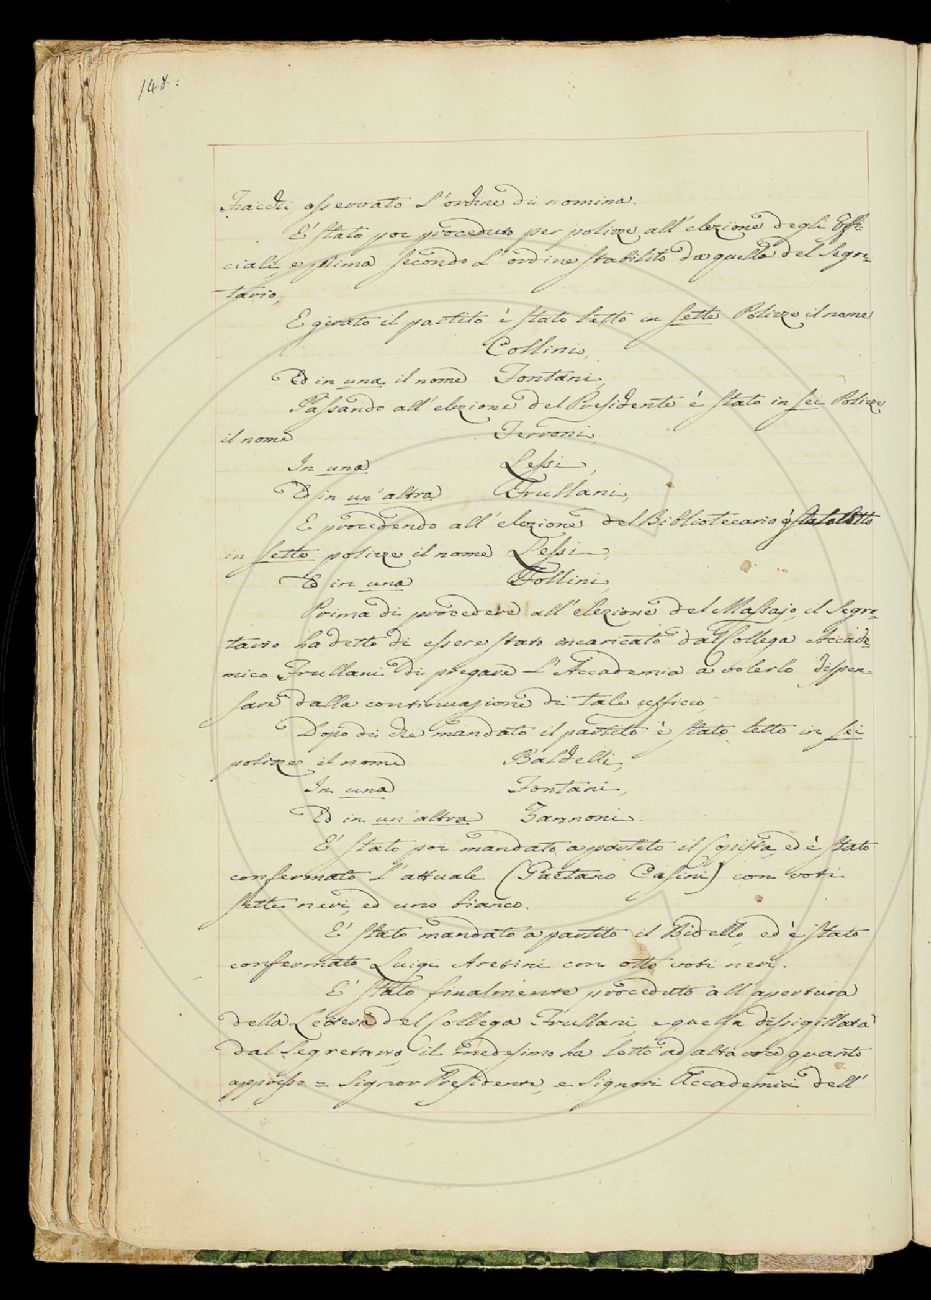 148.
Tracci osservato l'ordine di nomina.
E' stato poi proceduto per polizze all'elezione degli Offi-
ciali, e prima secondo l'ordine stabilito da quella del Segre-
tario,
E girato il partito è stato letto in sette Polizze il nome
Collini,
Ed in una il nome Fontani,
Passando all'elezione del Presidente è stato in sei Polizze
il nome Ferroni,
In una Lessi,
E in un'altra Frullani,
E procedendo all'elezione del Bibliotecario è stato letto
in sette polizze il nome Lessi
E in una Follini
Prima di procedere all'elezione del Massajo, il Segre-
tario ha detto di essere stato incaricato dal Collega Accade-
mico Frullani di pregare l'Accademia a volerlo dispen-
sare dalla continuazione di tale ufficio,
Dopo di che mandato il partito è stato letto in sei
polizze il nome Baldelli,
In una Fontani,
Ed in un'altra Zannoni.
E' stato poi mandato a partito il Copista, ed è stato
confermato l'attuale (Gaetano Casini) con voti
sette neri, ed uno bianco.
E' stato mandato a partito il Bidello, ed è stato
confermato Luigi Aretini con otto voti neri.
E' stato finalmente proceduto all'apertura
della Lettera del Collega Frullani, e quella dissigillata
dal Segretario, il medesimo ha letto ad alta voce quanto
appresso = Signor Presidente, e Signori Accademici dell'